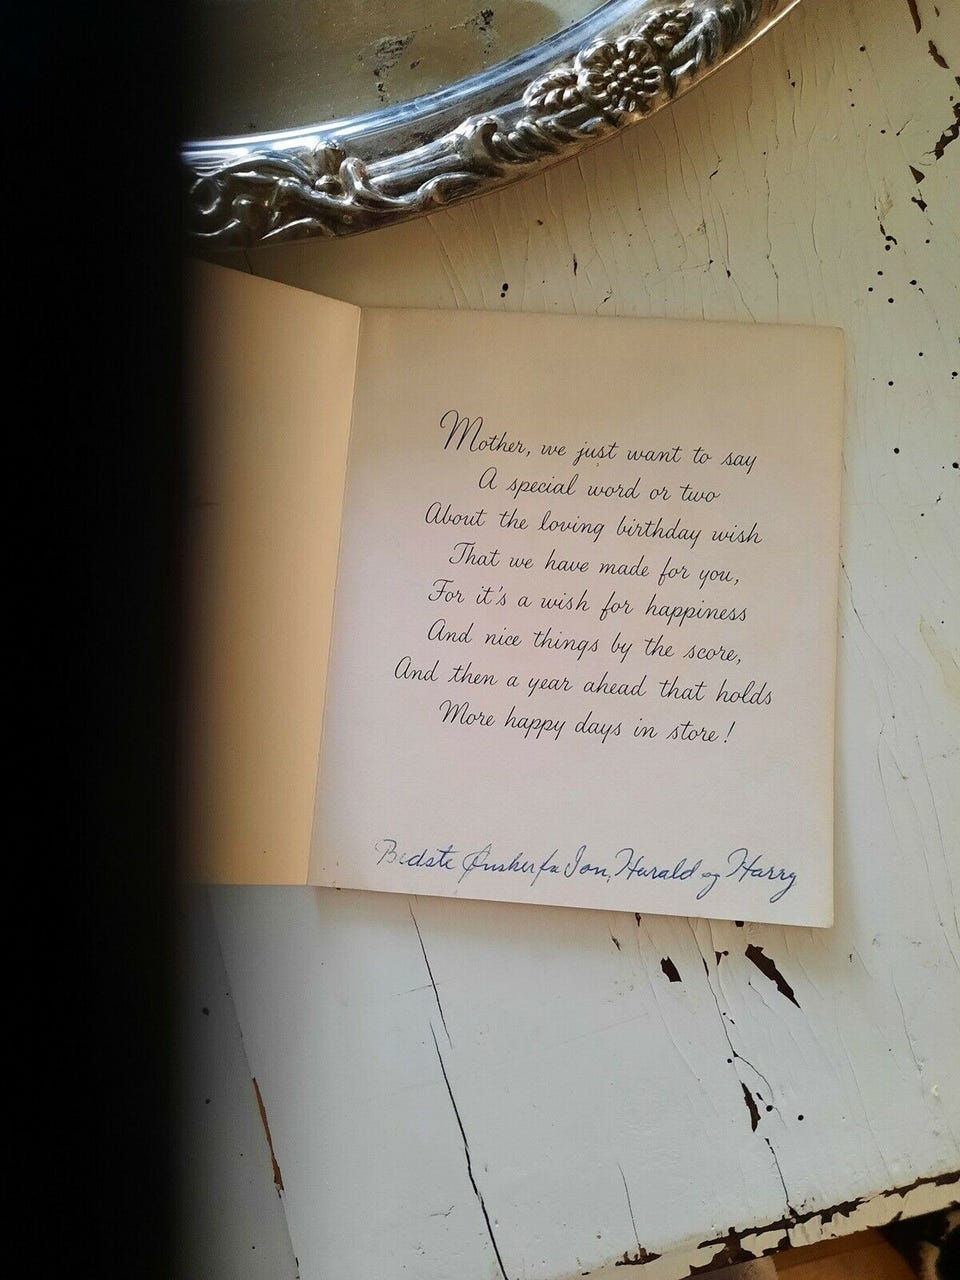 Mother, we just want to say
A special word or two
About the loving birthday wish
That we have made for you,
For it's a wish for happiness
And nice things by the score,
And then a year ahead that holds
More happy days in store!
Bedste Ønsker fra Jon, Harald og Harry